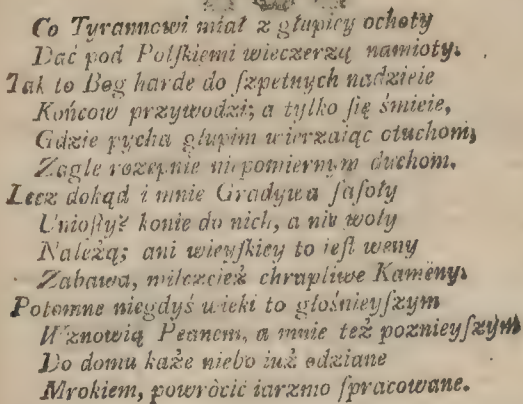 Co Tyrannowi miał z głupiey ochoty
Dać pod Polſkiemi wieczerzą namioty.
Tak to Bog harde do ſzpetnych nadzieie
Końcow przywodzi; a tylko ſię śmieie,
Gdzie pycha głupim wierzaiąc otuchom,
Zagle rozepnie niepomiernym duchom.
Lecz dokąd i mnie Gradywa ſaſoły
Unioſły? konie do nich, a nie woły
Należą; ani wieyſkiey to ieſt weny
Zabawa, milczcież chrapliwe Kamëny.
Potomne niegdyś wieki to głośnieyſzym
Wznowią Peanem, a mnie też poznieyſzym
Do domu każe niebo iuż odziane
Mrokiem, powròcić iarzmo ſpracowane.